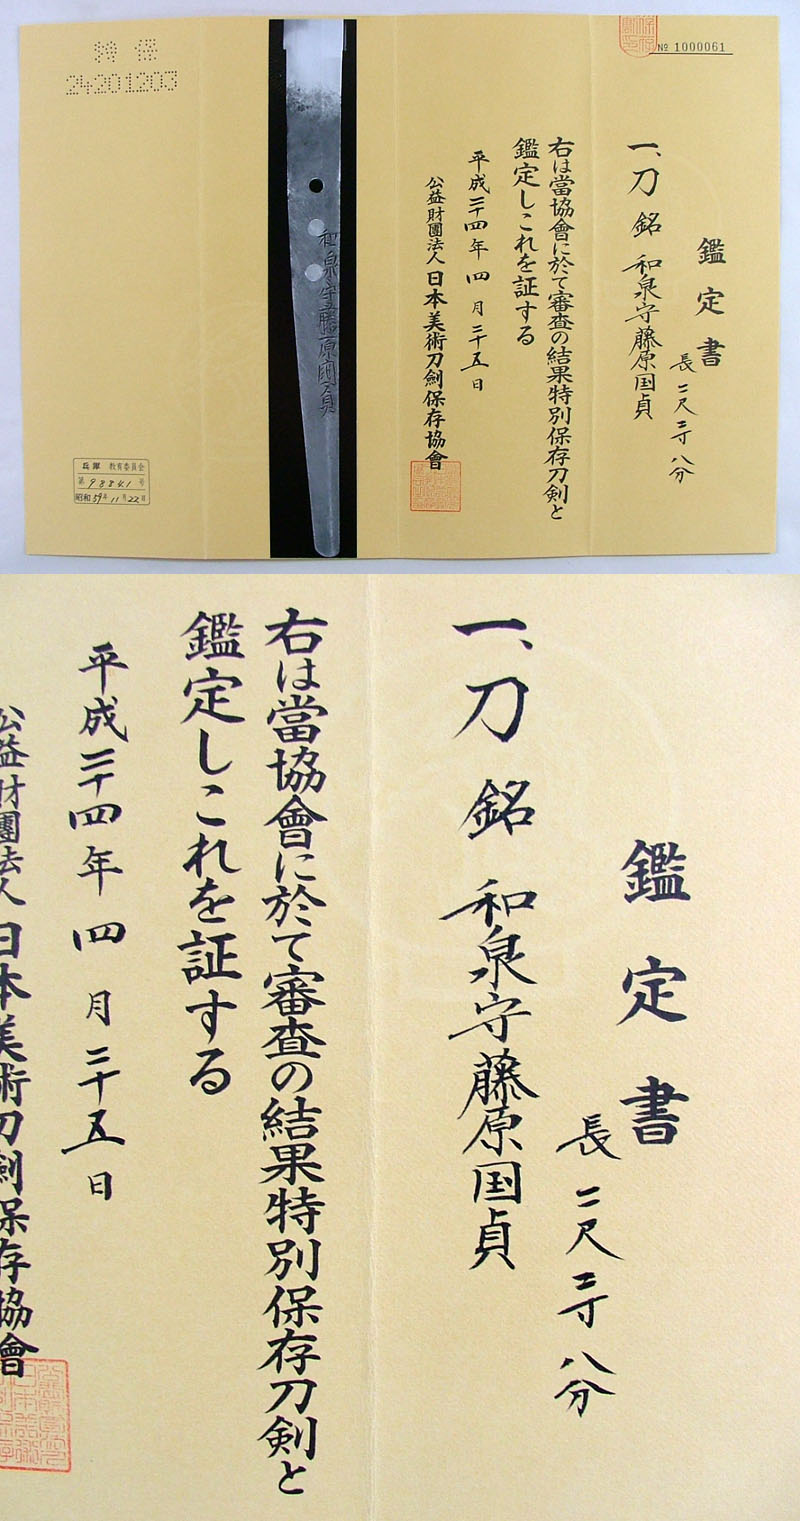 № 1000061
鑑定書
長二尺二寸八分
一、刀 銘 和泉守藤原国貞
右は當協會に於て審査の結果特別保存刀剣と
鑑定しこれを証する
平成二十四年四月二十五日
公益財團法人 日本美術刀剣保存協會
和泉守藤原國貞
特保
24201203
兵庫 教育委員会
第98841号
昭和59年11月22日
鑑定書
長二尺二寸八分
一、刀 銘 和泉守藤原国貞
右は當協會に於て審査の結果特別保存刀剣と
鑑定しこれを証する
平成二十四年四月二十五日
公益財團法人 日本美術刀剣保存協會